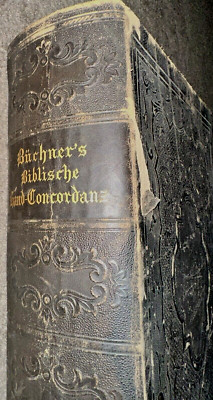 Büchner's
Biblische
Hand-Concordanz